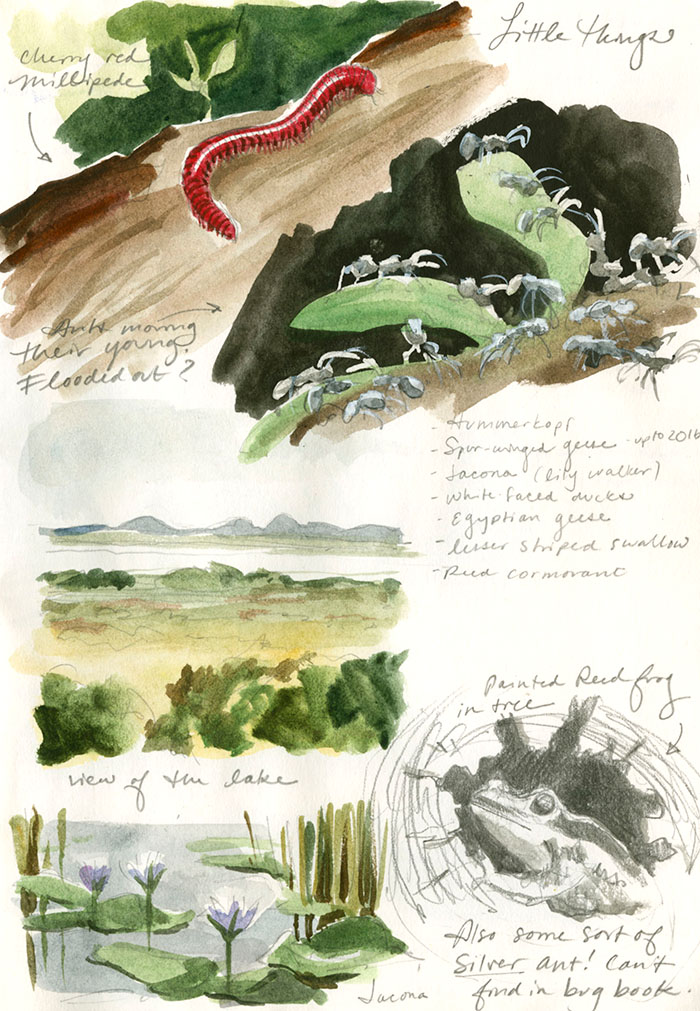 Little Things
Cherry red
millipede
Ants moving
their young.
Flooded out?
- Hummerkopf
- Spur-winged geese - up to 20 lb
- Jacona (lily walker)
- White-faced ducks
- Egyptian geese
- lesser striped swallow
- Reed cormorant
Painted Reed frog
in tree
view of the lake
Also some sort of
Silver ant! Can't
find in bug book.
Jacona